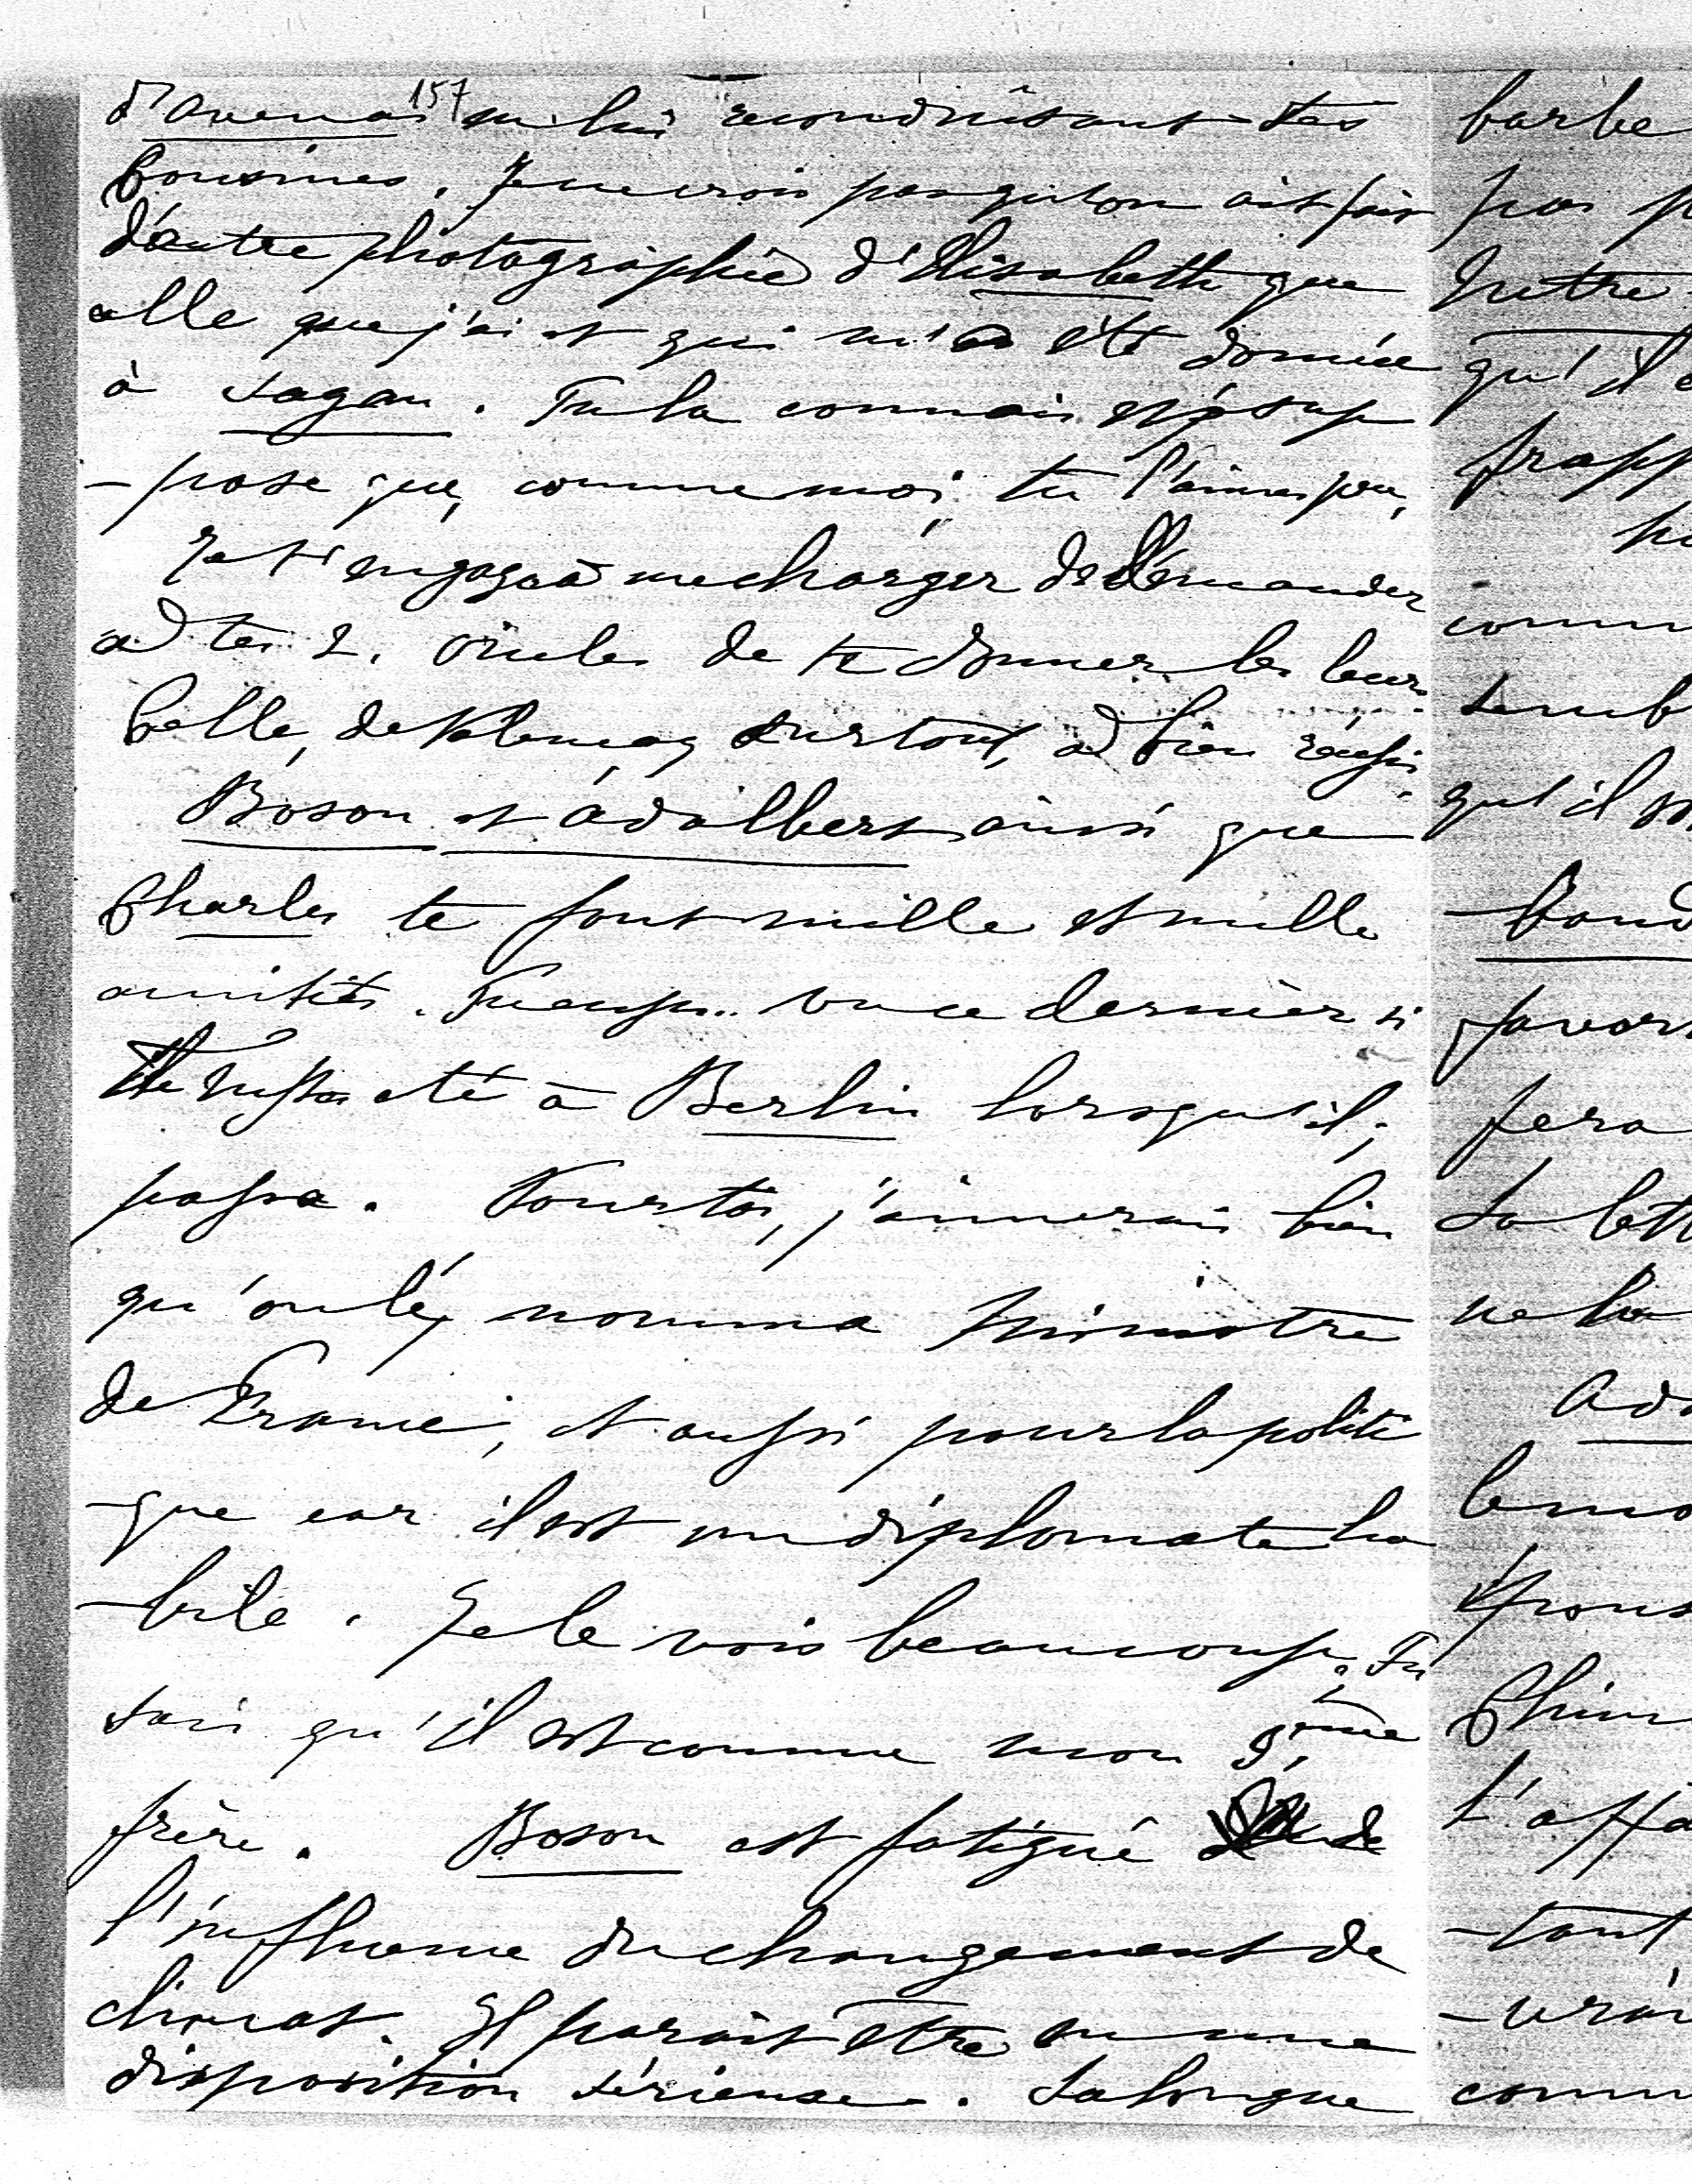 157
d'Avenas en lui reconduisant tes
Cousines. Je ne crois pas qu'on ait fait
d'autre photographie d'Elisabeth que
celle que j'ai et qui m'a été donnée
à Sagan. Tu la connais et je sup
-pose que, comme moi, tu l'aimes peu,
Je t'engage à me charger de demander
à tes 2. oncles de te donner les leurs.
Celle, de Valençay surtout, a bien réussi.
Boson et Adalbert ainsi que
Charles te font mille et mille
amitiés. Tu eusses vu ce dernier si
tu eusses été à Berlin lorsqu'il y
passa. Pour toi, j'aimerais bien
qu'on l'y nomma Ministre
de France, et aussi pour la politi
-que car il est un diplomate ha
-bile. Je le vois beaucoup. Tu
sais qu'il est comme mon 3,ème
frère. Boson est fatigué de
l'influence du changement de
climat. Il paraît être en une
disposition sérieuse. Sa longue
barbe
pas p
Autre
qu'il
frapp
comm
semb
qu'il
favor
fera
Sa lett
ne la
Ad
épous
Chim
l'affa
-tant
-vrai
comm